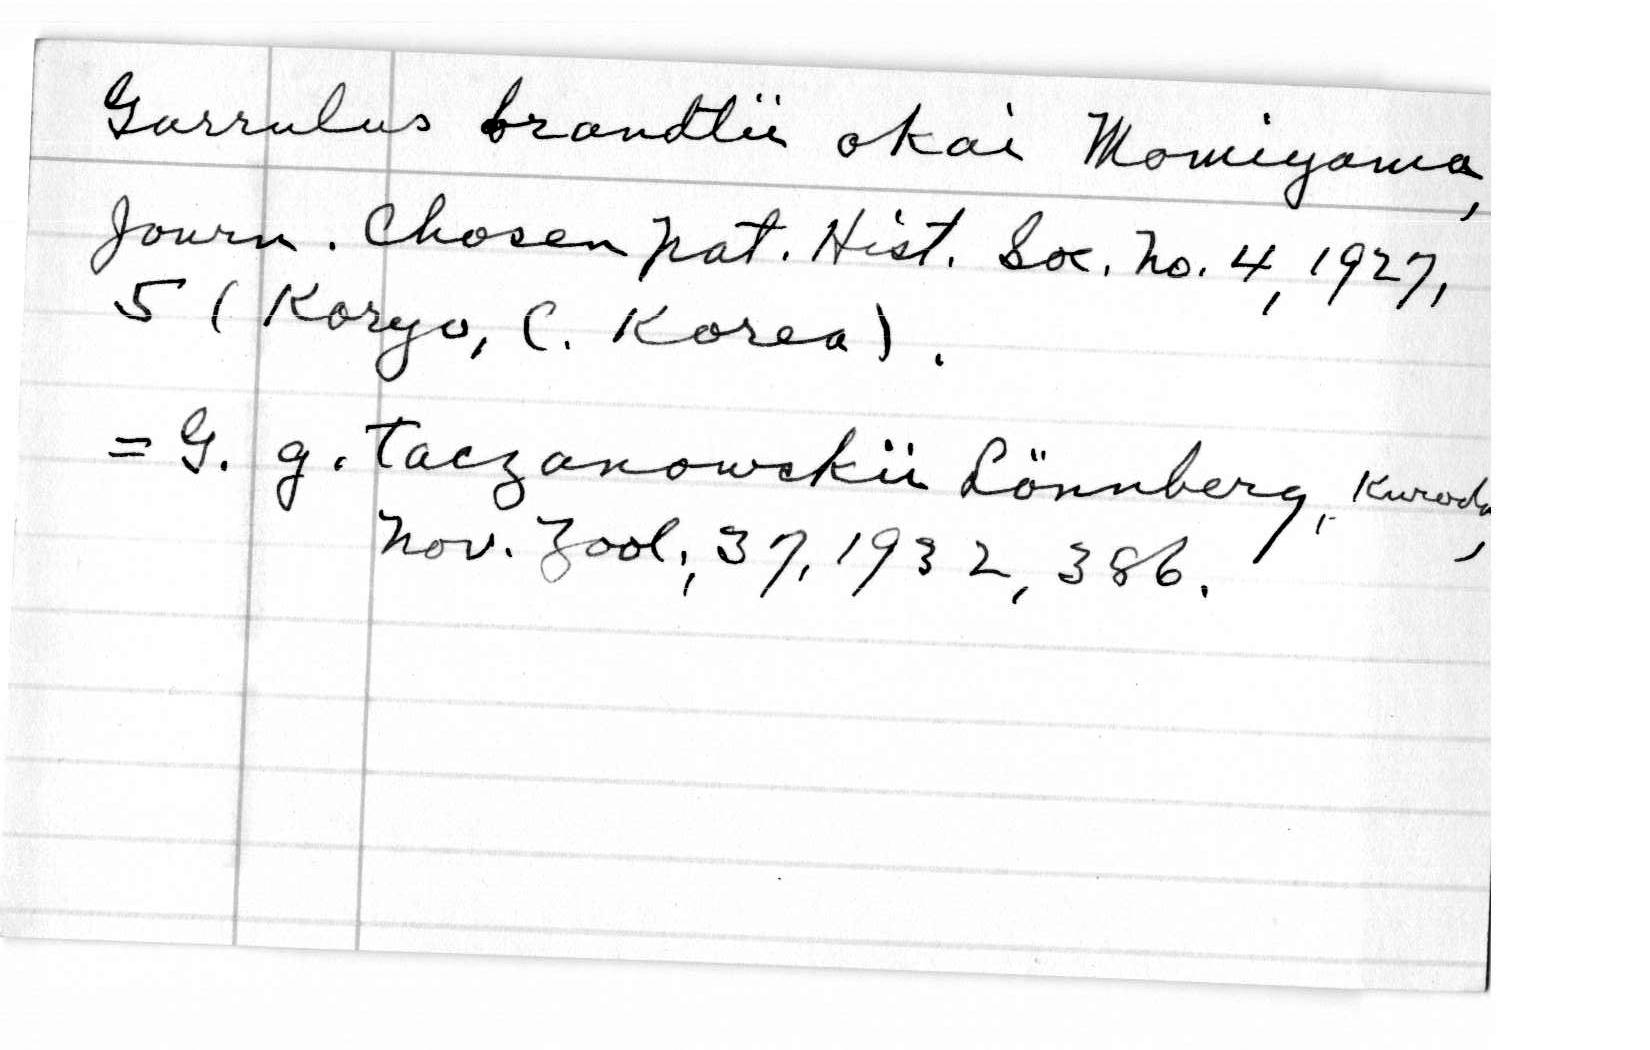 Garrulus brandtii okai Momiyama,
Journ. Chosen Nat. Hist. Soc. No. 4, 1927,
5 (Koryo, C. Korea).
= G. g. taczanowskii Lönnberg, Kuroda,
Nov. Zool., 37, 1932, 386.